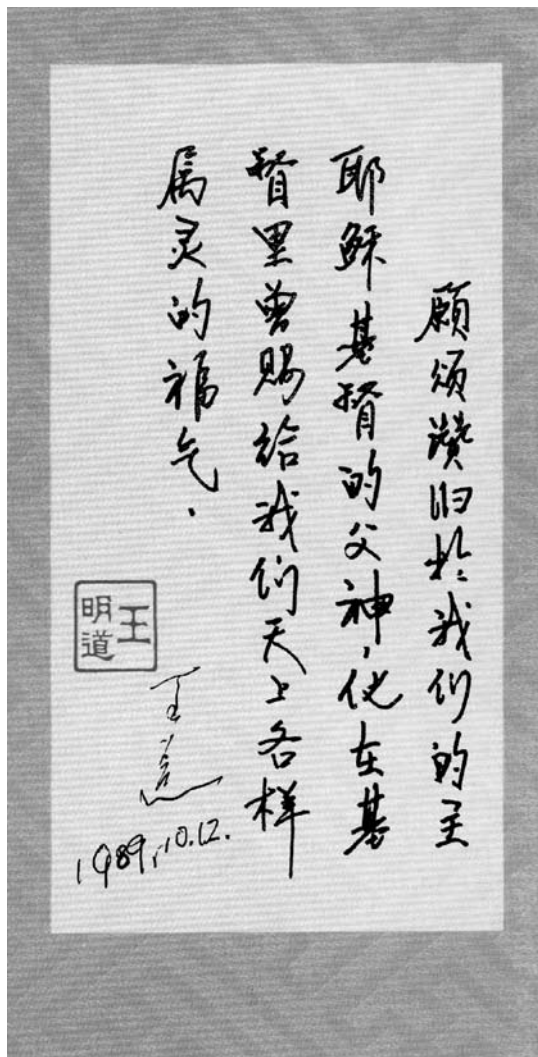 願颂讚归於我们的主
耶稣基督的父神，他在基
督里曾赐给我们天上各样
属灵的福气．
王明道
王
1989.10.12.